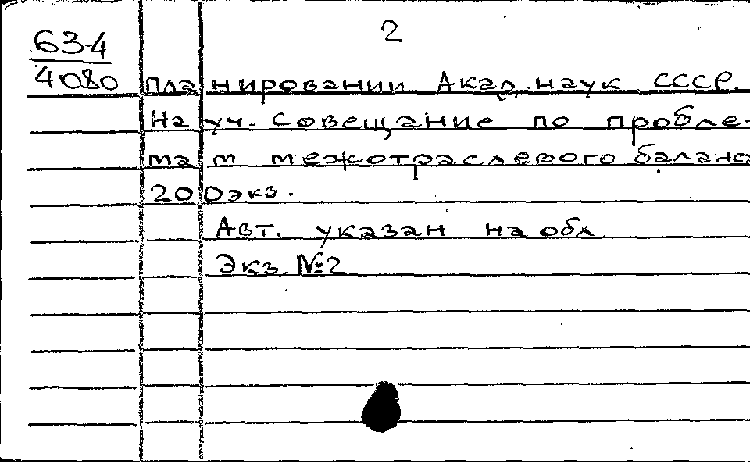 2
63-4
4080
планировании Акад. наук СССР.
Науч. совещание по пробле-
мам межотраслевого баланса
200 экз.
Авт. указан на обл
Экз №2